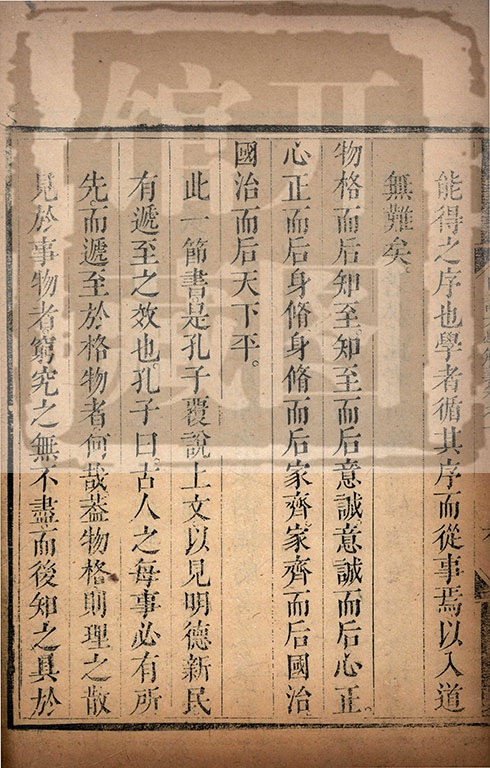 能得之序也學者循其序而從事焉以入道
無難矣。
物格而后知至。知至而后意誠。意誠而后心正。
心正而后身脩。身脩而后家齊。家齊而后國治。
國治而后天下平。
此一節書是孔子覆說上文以見明德新民
有遞至之效也。孔子曰。古人之每事必有所
先而遞至於格物者何哉。葢物格則理之散
見於事物者。窮究之無不盡。而後知之具於